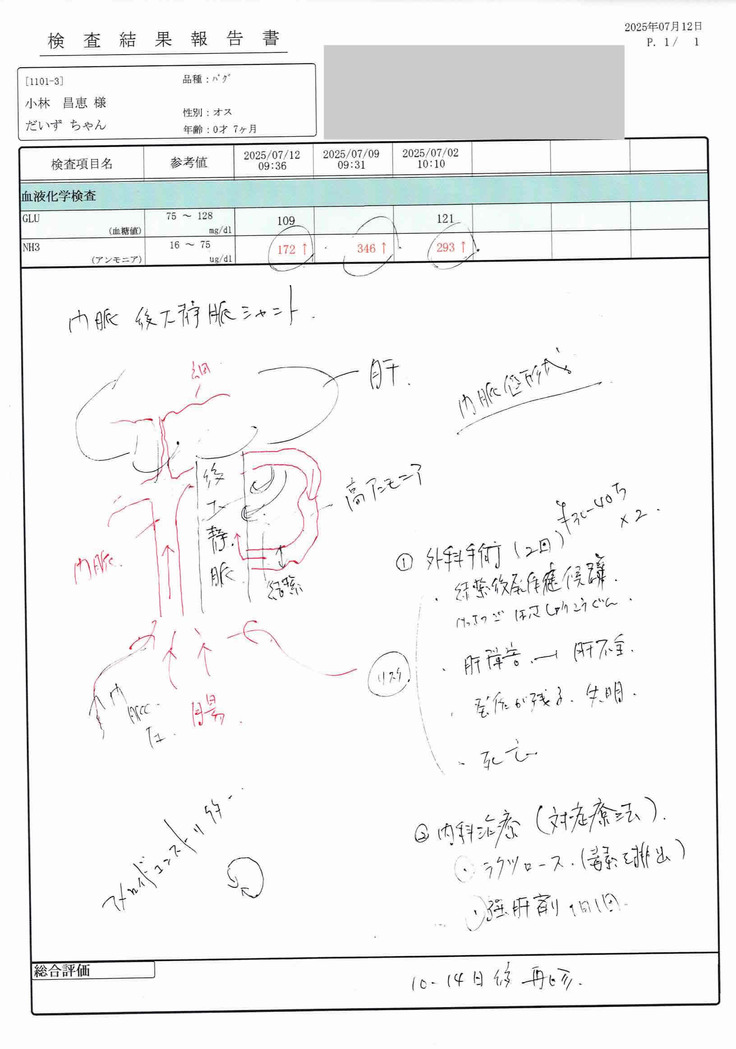 2025年07月12日
検査結果報告書
P. 1/ 1
[1101-3]
小林 昌恵 様
だいず ちゃん
品種:パグ
性別:オス
年齢:0才 7ヶ月
検査項目名 参考値 2025/07/12 09:36 2025/07/09 09:31 2025/07/02 10:10
血液化学検査
GLU (血糖値) 75 ~ 128 mg/dl 109 121
NH3 (アンモニア) 16 ~ 75 ug/dl 172 ↑ 346 ↑ 293 ↑
門脈 後大静脈シャント.
肝.
門脈低形成
後大静脈
高アンモニア
門脈.
結紮
×2.
① 外科手術(2回)
・結紮後発作症候群.
・肝障害 → 肝不全.
リスク
・発作が残る. 失明.
・死亡
門脈圧
腸.
② 内科治療(対症療法).
・ラクツロース.(毒素を排出)
・強肝剤 1日1回.
総合評価
10-14日後 再診.